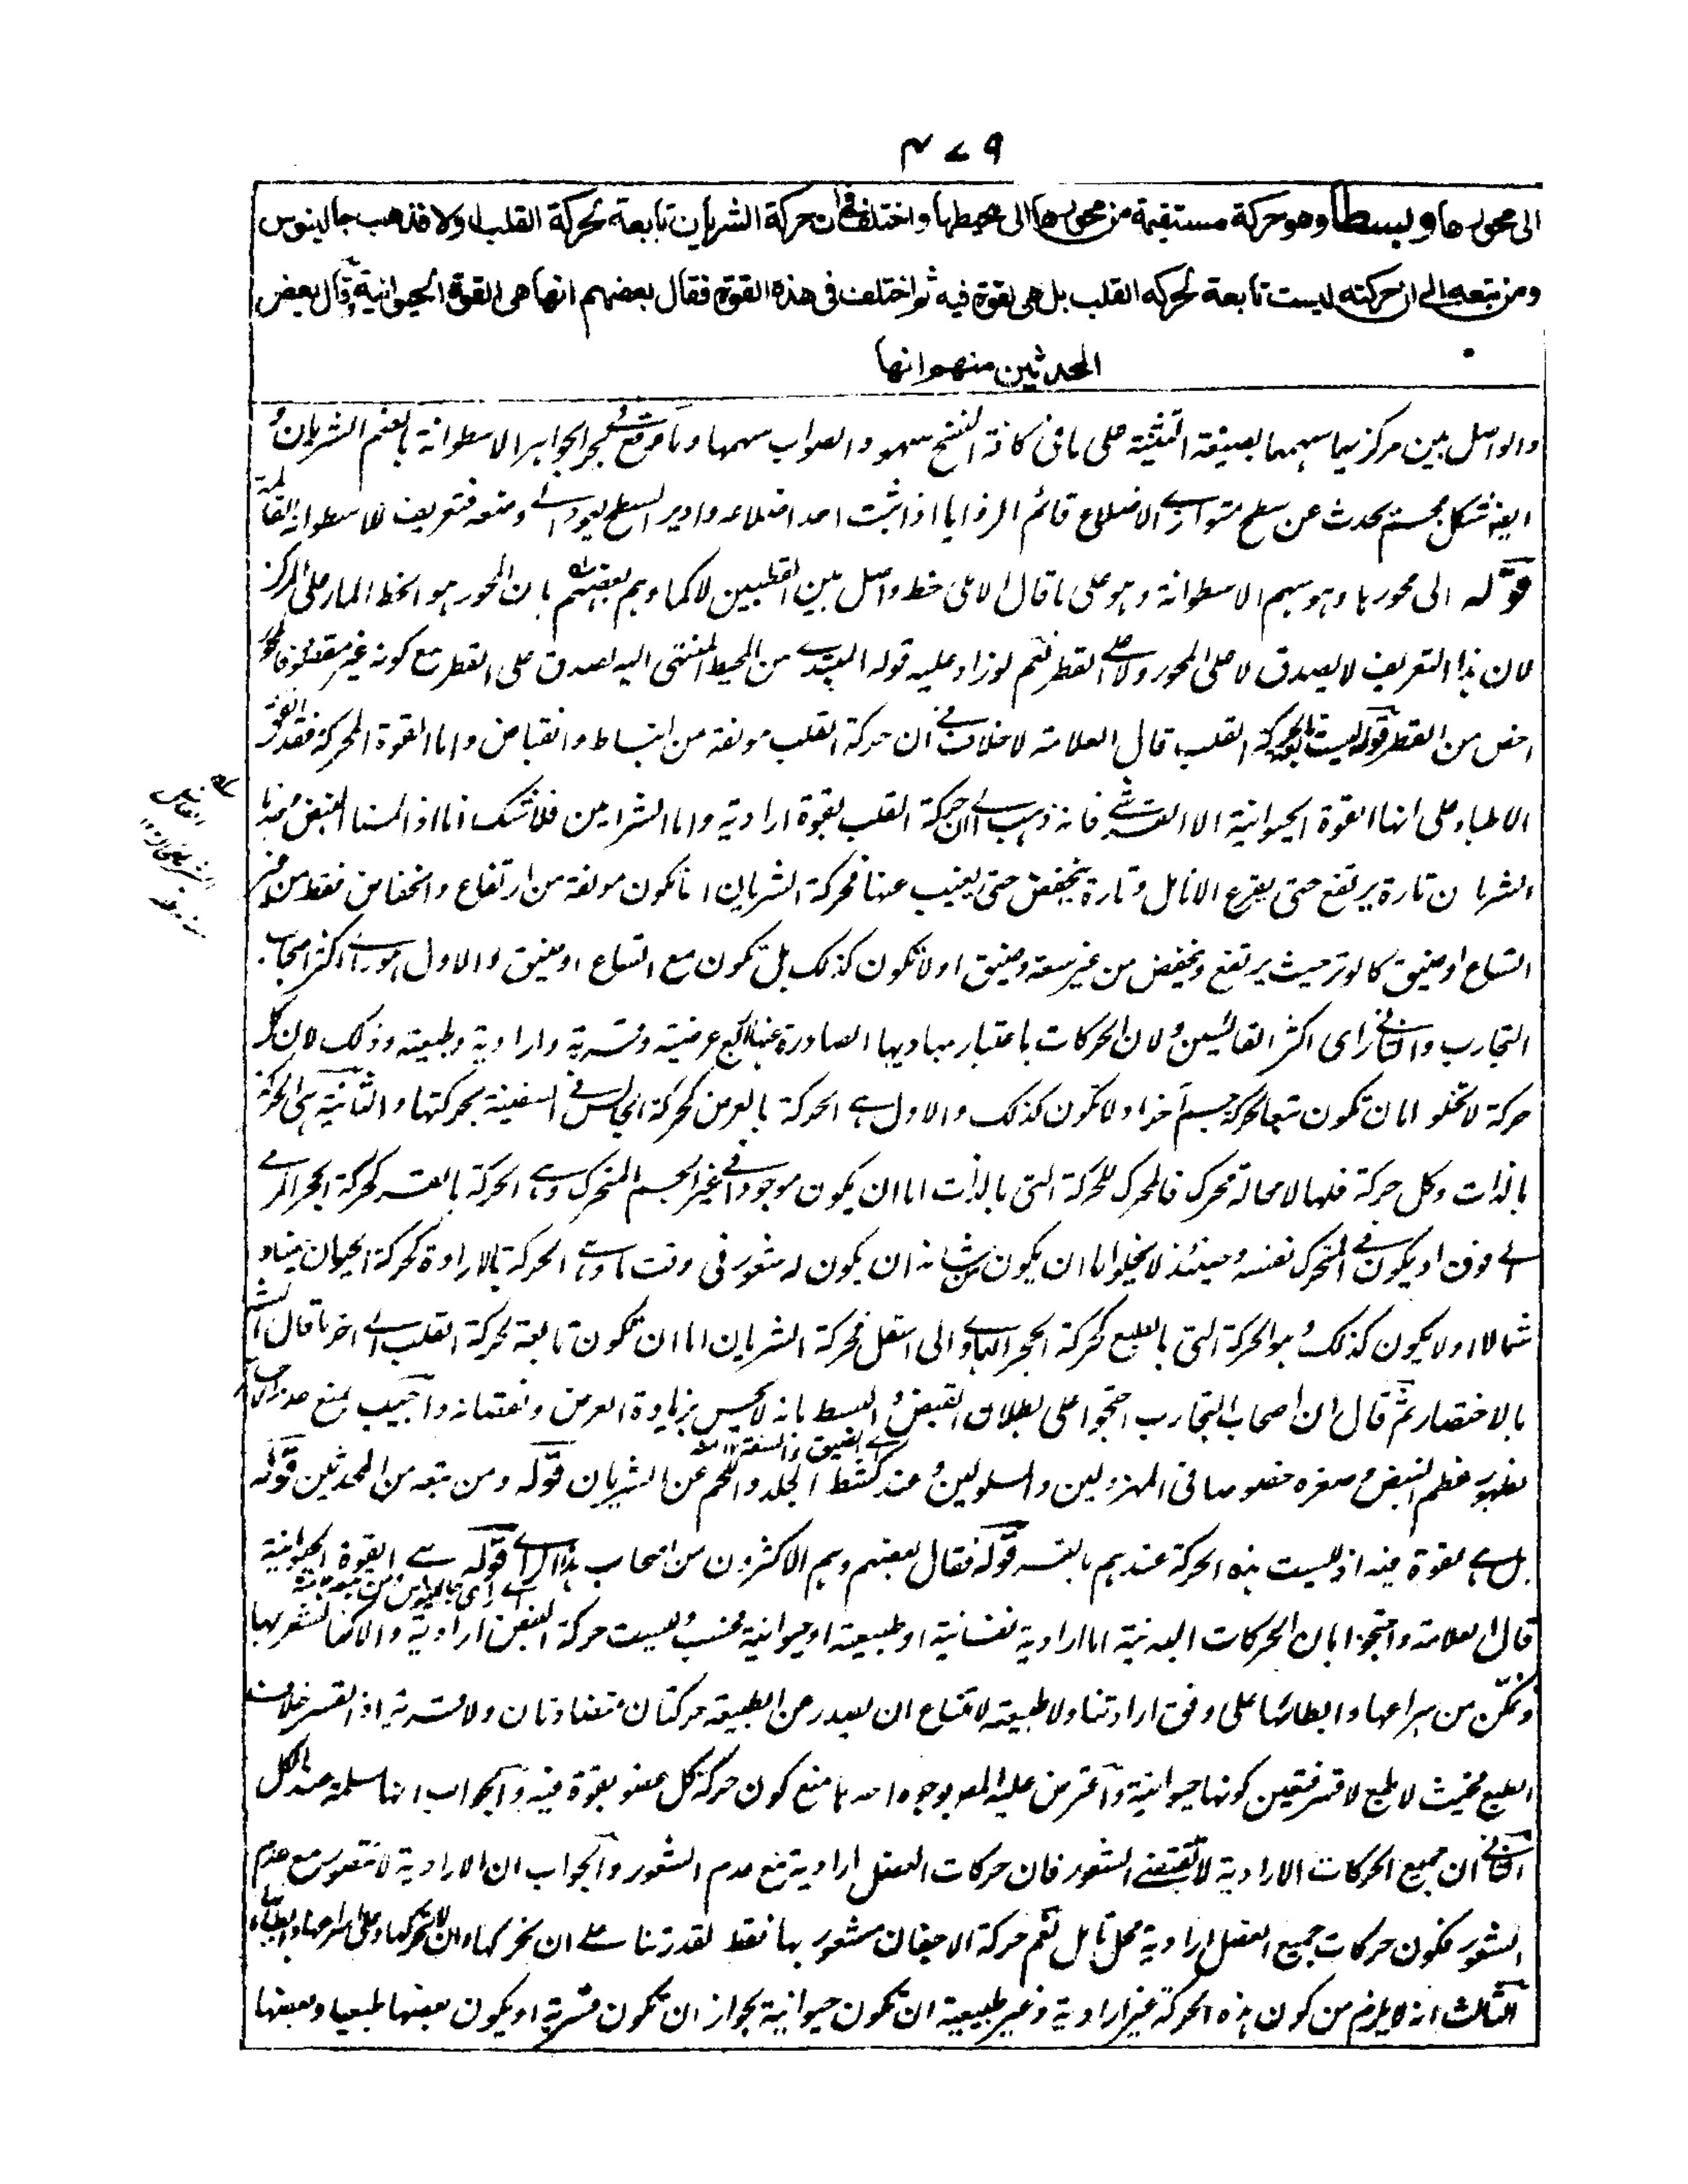 ٤٧٩
الى محورها وبسطا وهو حركة مستقيمة من محورها الى محيطها واختلف فى ان حركة الشريان تابعة لحركة القلب اولا فذهب جالينوس
ومن تبعه الى ان حركته ليست تابعة لحركة القلب بل هى بقوة فيه ثم اختلف فى هذه القوة فقال بعضهم انها هى القوة الحيوانية وقال بعض
المحدثين منهم انها
والواصل بين مركزيهما سهمها بصيغة التثنية على ما فى كافة النسخ سهو والصواب سهمها وما وقع فى بحر الجواهر الاسطوانة بالضم الشريان و
ايضا شكل مجسم يحدث عن سطح متوازى الاضلاع قائم الزوايا اذا ثبت احد اضلاعه وادير السطح ليعود الى وضعه فتعريف للاسطوانة القائمة
قوله الى محورها وهو سهم الاسطوانة وهو على ما قال الاملى خط واصل بين القطبين لا كما وهم بعضهم بان المحور هو الخط المار على المركز
لان هذا التعريف لا يصدق لا على المحور ولا على القطر نعم لو زاد عليه قوله المبتدى من المحيط المنتهى اليه لصدق على القطر مع كونه غير مقصود فالمحور
اخص من القطر قوله ليست تابعة لحركة القلب قال العلامة لا خلاف فى ان حركة القلب مولفة من انبساط وانقباض واما القوة المحركة فقد اتفق
الاطباء على انها القوة الحيوانية الا القرشى فانه ذهب الى ان حركة القلب بقوة ارادية واما الشرايين فلا شك انا اذا لمسنا النبض وجدنا
الشريان تارة يرتفع حتى يقرع الانامل وتارة ينخفض حتى يغيب عنها فحركة الشريان اما تكون مولفة من ارتفاع وانخفاض فقط من غير
اتساع او ضيق كالوتر حيث يرتفع وينخفض من غير سعة وضيق او لا تكون كذلك بل تكون مع اتساع او ضيق والاول هو راى اكثر اصحاب
التجارب والثانى راى اكثر القائسين ولان الحركات باعتبار مباديها الصادرة عنها اربع عرضية وقسرية وارادية وطبيعية وذلك لان كل
حركة لا تخلو اما ان تكون تبعا لحركة جسم آخر او لا تكون كذلك والاول هى الحركة بالعرض كحركة الجالس فى السفينة بحركتها والثانية هى الحركة
بالذات وكل حركة فلها لا محالة محرك فالمحرك للحركة التى بالذات اما ان يكون موجودا فى غير الجسم المتحرك وهى الحركة بالقسر كحركة الحجر المرمى
الى فوق او يكون فى المتحرك نفسه وحينئذ لا يخلو اما ان يكون من شانه ان يكون له شعور فى وقت ما وهى الحركة بالارادة كحركة الحيوان يمينا و
شمالا او لا يكون كذلك وهو الحركة التى بالطبع كحركة الحجر الهاوى الى اسفل فحركة الشريان اما ان تكون تابعة لحركة القلب الى اخر ما قال الشارح
بالاختصار ثم قال ان اصحاب التجارب احتجوا على بطلان القبض والبسط بانه لا يحس بزيادة العرض ونقصانه واجيب بمنع عدم الاحساس
اى الضيق والسعة ١٢ منه
بظهور عظم النبض وصغره خصوصا فى المهزولين والمسلولين و عند كشط الجلد واللحم عن الشريان قوله ومن تبعه من المحدثين قوله
بل هى بقوة فيه اذ ليست هذه الحركة عندهم بالقسر قوله فقال بعضهم وهم الاكثرون من اصحاب هذا الراى قوله هى القوة الحيوانية
اى راى جالينوس ومن تبعه ١٢ منه
قال العلامة واحتجوا بان الحركات البدنية اما ارادية نفسانية او طبيعية او حيوانية فحسب وليست حركة النبض ارادية والا لكنا نشعر بها
ونتمكن من سراعها وابطائها على وفق ارادتنا ولا طبيعية لامتناع ان يصدر عن الطبيعة حركتان متضادتان ولا قسرية اذ القسر خلاف
الطبع فحيث لا طبع لا قسر فتعين كونها حيوانية واعترض عليه المص بوجوه احدها منع كون حركة كل عضو بقوة فيه والجواب انها مسلمة عند الكل
الثانى ان جميع الحركات الارادية لا تقتضى الشعور فان حركات العضل ارادية مع عدم الشعور والجواب ان الارادية لا تتصور مع عدم
الشعور فكون حركات جميع العضل ارادية محل تامل نعم حركة الاجفان مشعور بها فقط لقدرتنا على ان نحركها وان لا نحركها وعلى اسراعها وابطائها
الثالث انه لا يلزم من كون هذه الحركة غير ارادية وغير طبيعية ان تكون حيوانية لجواز ان تكون قسرية او يكون بعضها طبعيا وبعضها